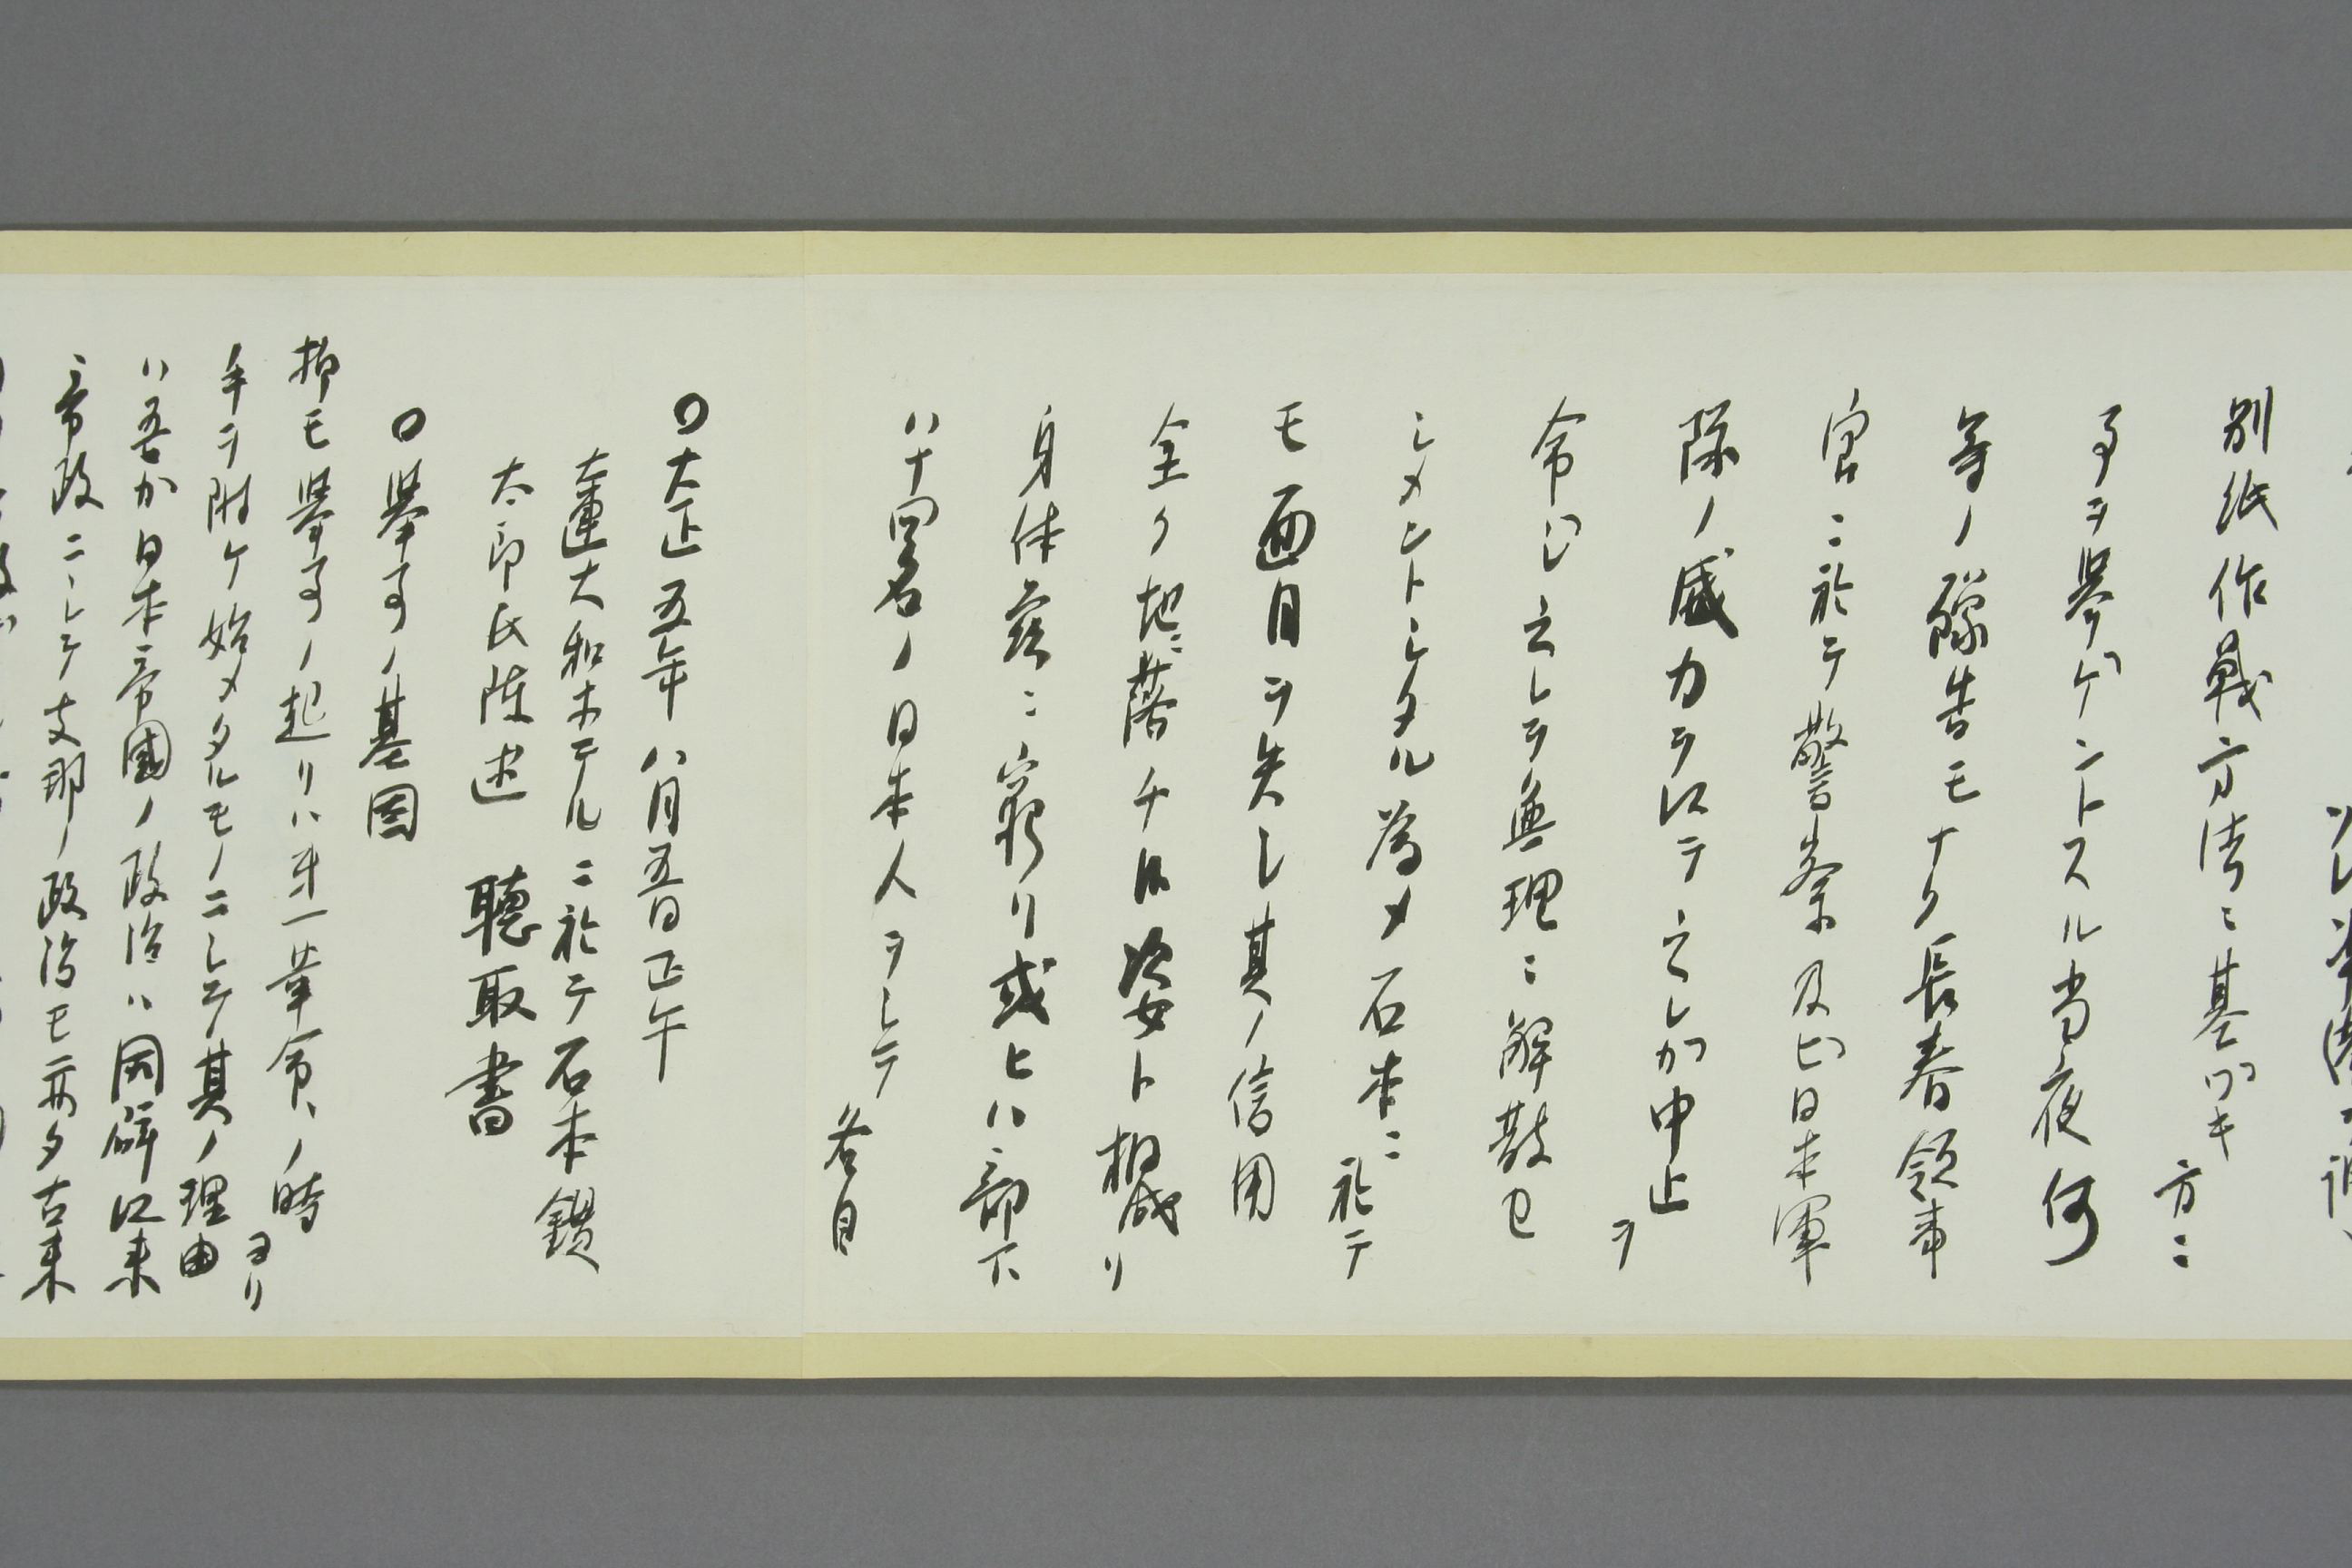 別紙作戦方法ニ基ヅキ方ニ
事ヲ挙ゲントスル当夜何
等ノ豫告モナク長春領事
官ニ於テ警察及ビ日本軍
隊ノ威力ヲ以テ之レガ中止ヲ
命じ之レヲ無理ニ解散セ
シメントシタル為メ石本ニ於テ
モ面目ヲ失し其ノ信用
全ク地ニ落チ候姿ト相成リ
身体茲ニ窮リ或ヒハ部下
八十四名ノ日本人ヲシテ各自
〇大正五年八月五日正午
大連大和ホテルニ於テ石本鑽
太郎氏陳述 聴取書
〇挙事ノ基因
抑モ挙事ノ起リハ第一革命ノ時ヨリ
手ヲ附ケ始メタルモノニシテ其ノ理由
ハ吾が日本帝國ノ政治ハ開闢以来
帝政ニシテ支那ノ政治モ亦タ古来